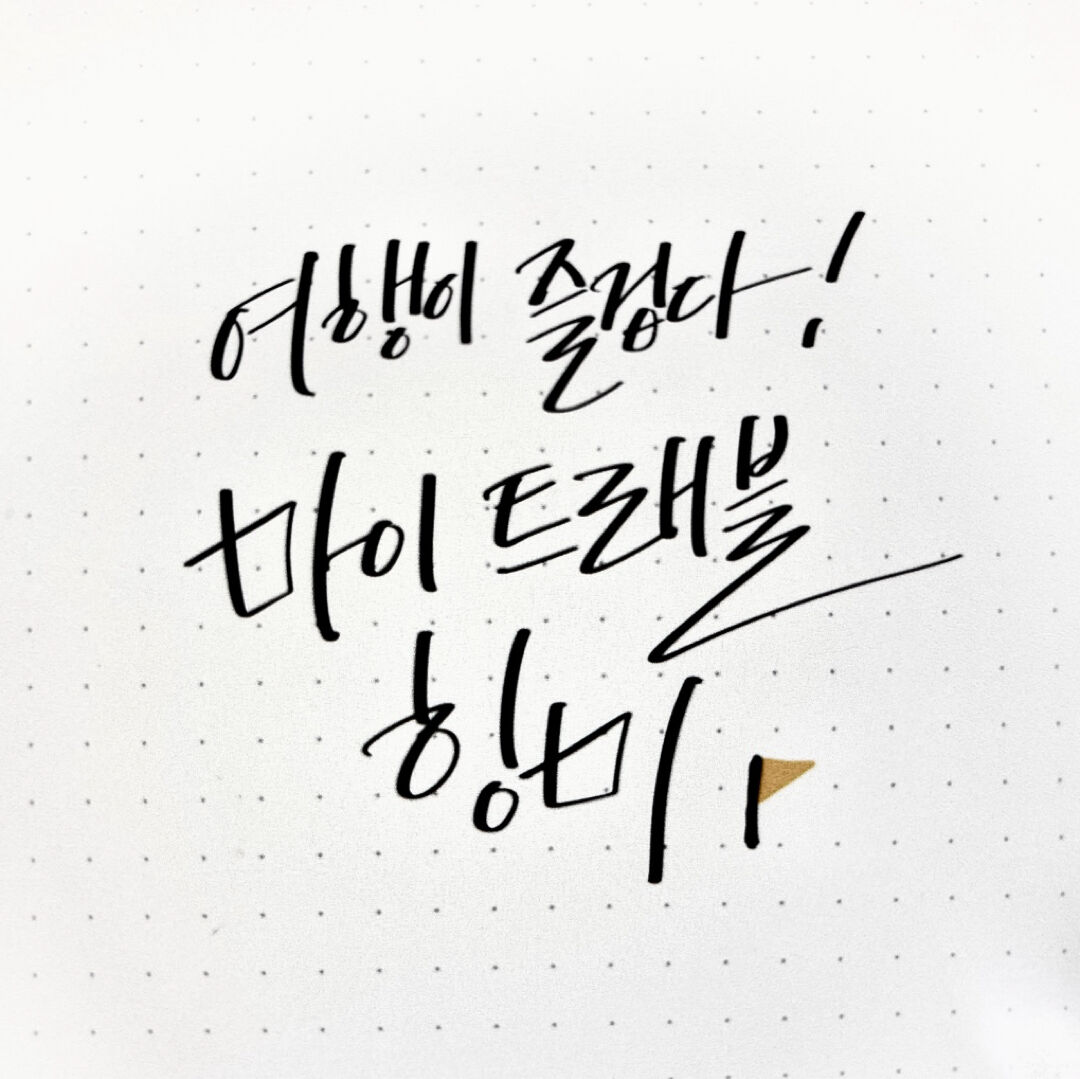 여행이 즐겁다!
마이 트래블
힝미